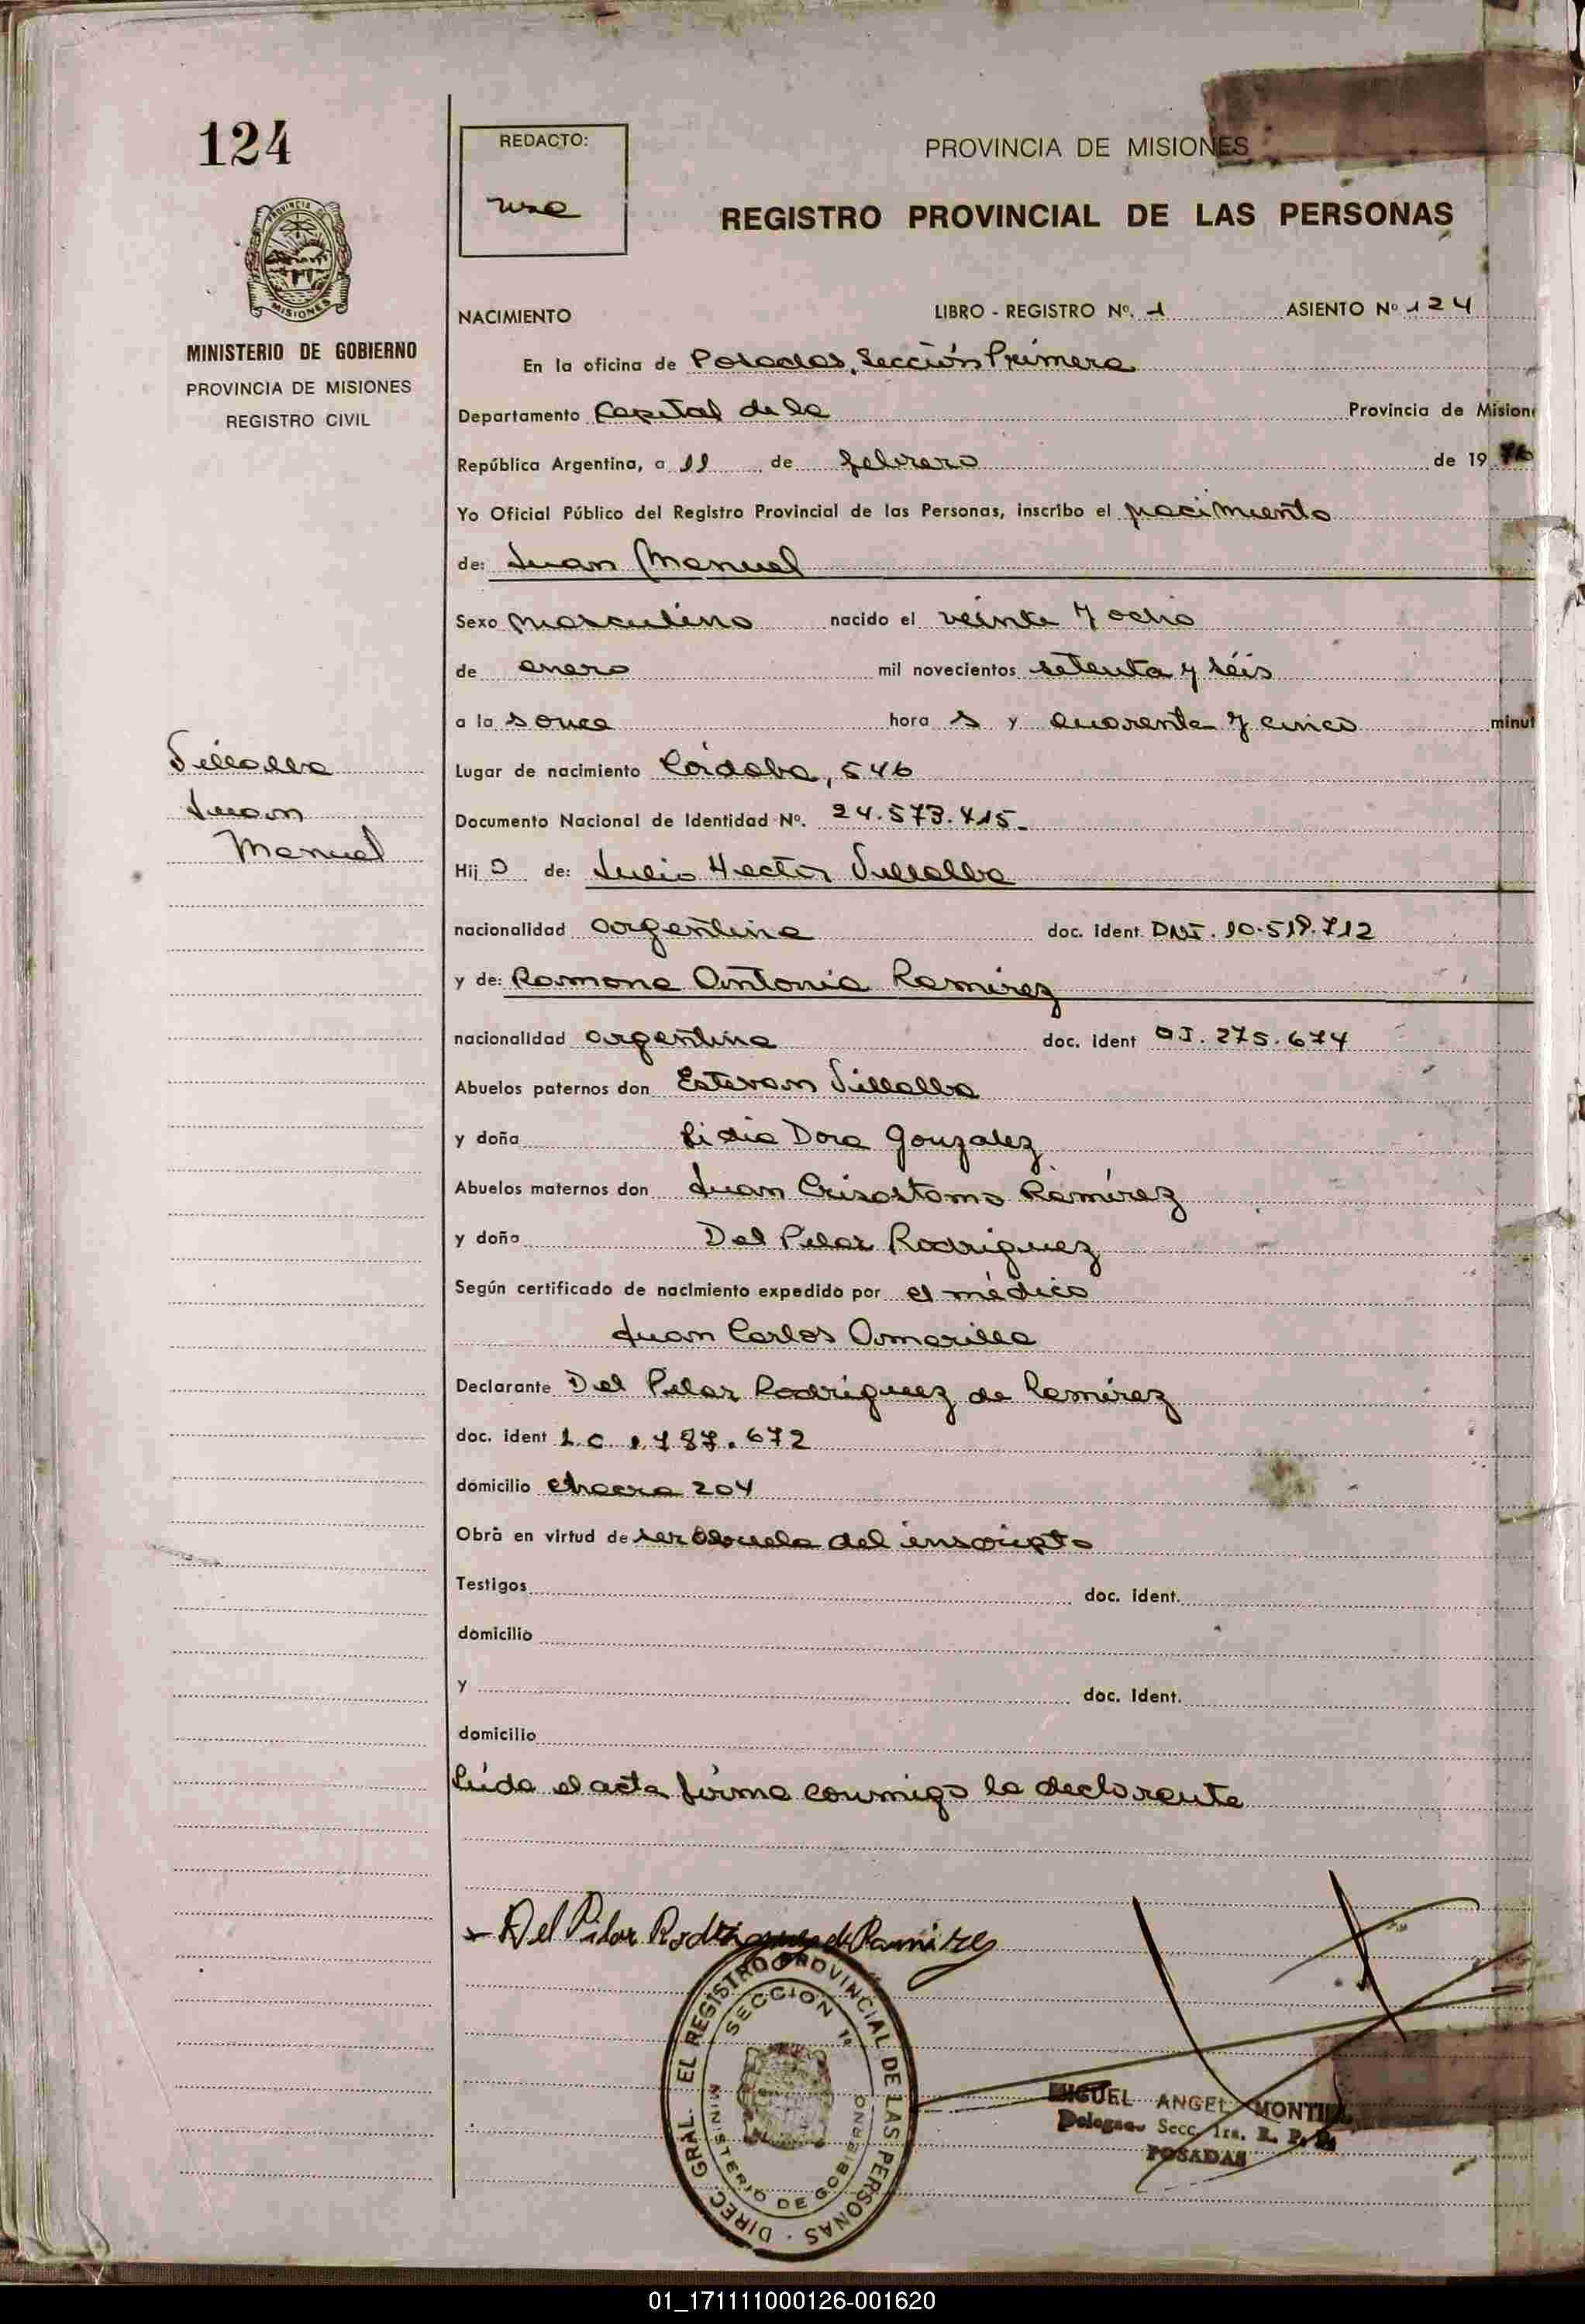 124
REDACTO:
PROVINCIA DE MISIONES
REGISTRO PROVINCIAL DE LAS PERSONAS
PROVINCIA
MISIONES
MINISTERIO DE GOBIERNO
PROVINCIA DE MISIONES
REGISTRO CIVIL
NACIMIENTO LIBRO - REGISTRO Nº. 1 ASIENTO Nº 124
En la oficina de Posadas, Sección Primera
Departamento Capital de la Provincia de Mision
República Argentina, a 11 de febrero de 19 76
Yo Oficial Público del Registro Provincial de las Personas, inscribo el nacimiento
de: Juan Manuel
Sexo masculino nacido el veinte y ocho
de enero mil novecientos setenta y séis
a la s once hora s y cuarenta y cinco minut
Villalba
Juan
Manuel
Lugar de nacimiento Córdoba, 546
Documento Nacional de Identidad Nº. 24.573.415.
Hij o de: Julio Hector Villalba
nacionalidad argentina doc. ident DNI. 10.519.712
y de: Ramona Antonia Ramirez
nacionalidad argentina doc. ident CI. 275.674
Abuelos paternos don Estevan Villalba
y doña Lidia Dora Gonzalez
Abuelos maternos don Juan Crisostomo Ramírez
y doña Del Pilar Rodriguez
Según certificado de nacimiento expedido por el médico
Juan Carlos Amarilla
Declarante Del Pilar Rodríguez de Ramírez
doc. ident L.C. 1.787.672
domicilio chacra 204
Obra en virtud de ser abuela del inscripto
Testigos doc. ident.
domicilio
y doc. ident.
domicilio
Leída el acta firma conmigo la declarante
Del Pilar Rodriguez de Ramirez
DIREC. GRAL. EL REGISTRO PROVINCIAL DE LAS PERSONAS
SECCION 1ª
MINISTERIO DE GOBIERNO
MIGUEL ANGEL MONTIEL
Delegado Secc. 1ra. R. P. P.
POSADAS
01_171111000126-001620